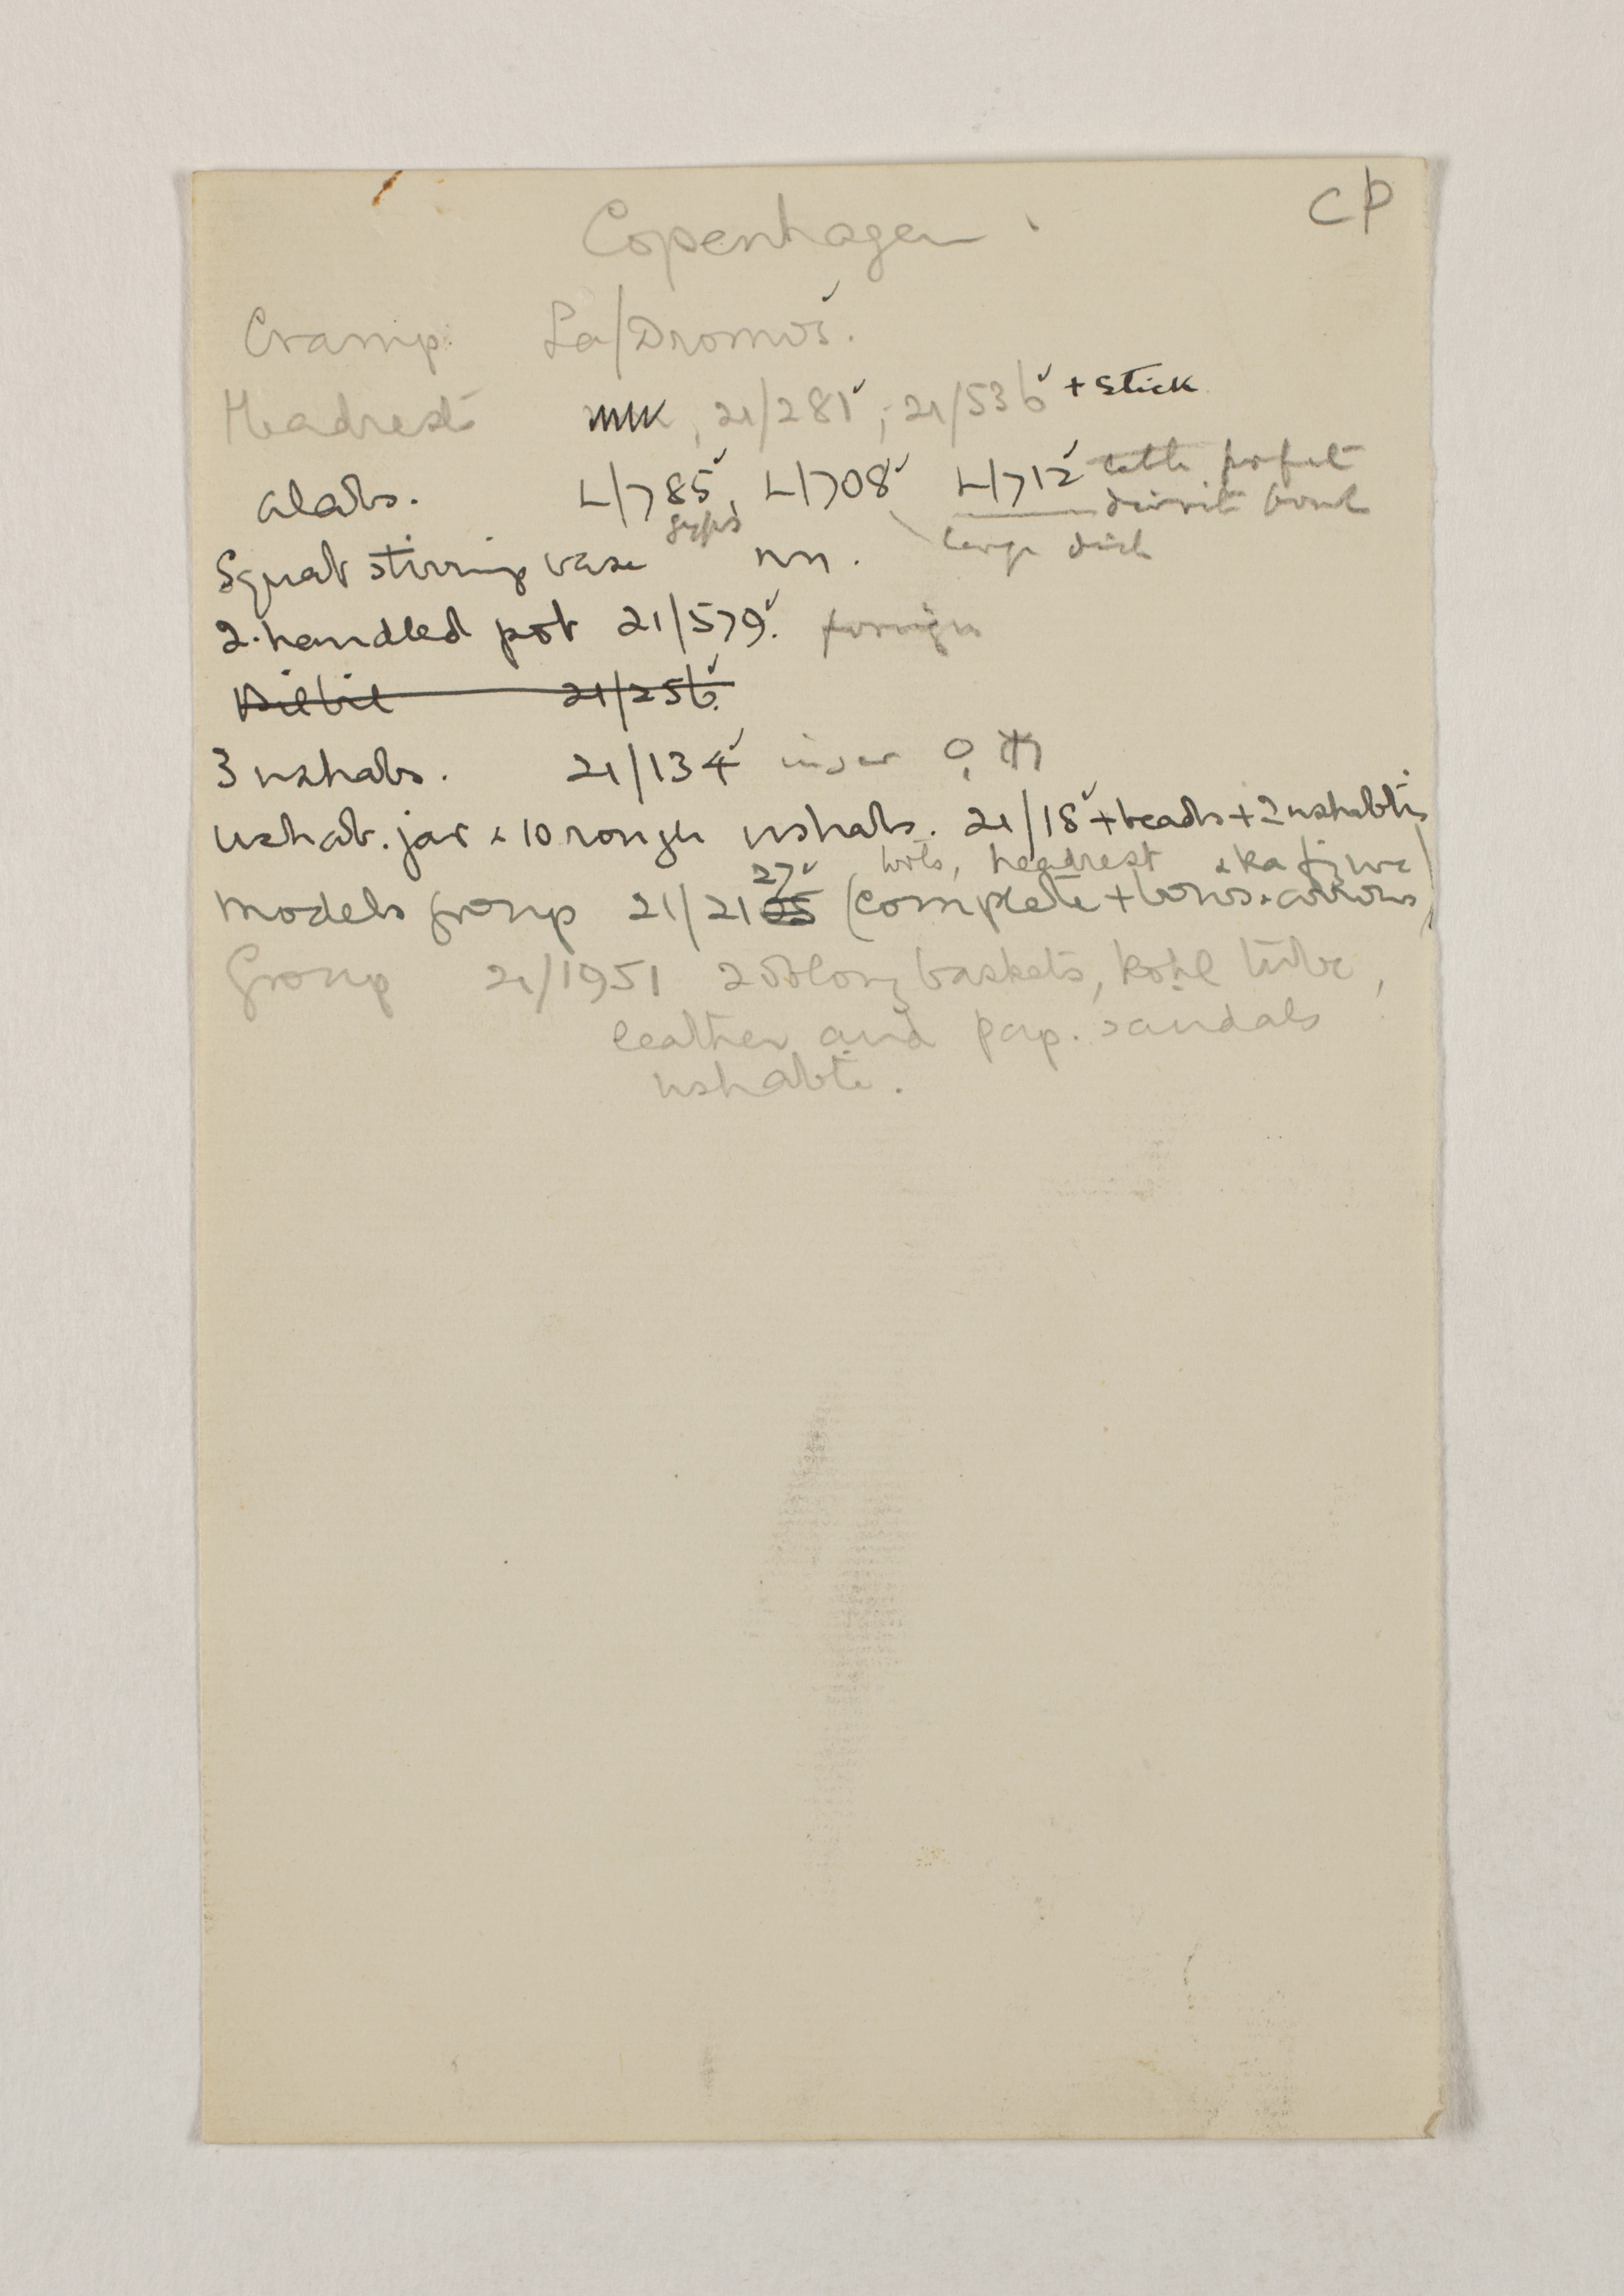 CP
Copenhagen.
Cramp La/Dromos. ✓
Headrests 21/281✓; 21/536✓ + stick
alabs. L/785✓, L/708✓ L/712✓ perfect
gyps diorit bowl
large dish
Squat stirrup vase nn.
2-handled pot 21/579.✓ foreign
Bilbil 21/256.✓
3 ushabs. 21/134✓
ushab. jar & 10 rough ushabs. 21/18✓ + beads + 2 ushabtis
27✓ tools, headrest & ka figure
models group 21/21 (complete + bows & arrows)
Group 21/1951 2 oblong baskets, kohl tube,
leather and pap. sandals
ushabti.